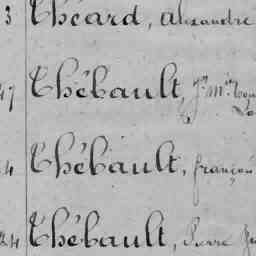 3 Théard, Alexandre
47 Thébault, Jn Mie
4 Thébault, françois
24 Thébault, Pierre